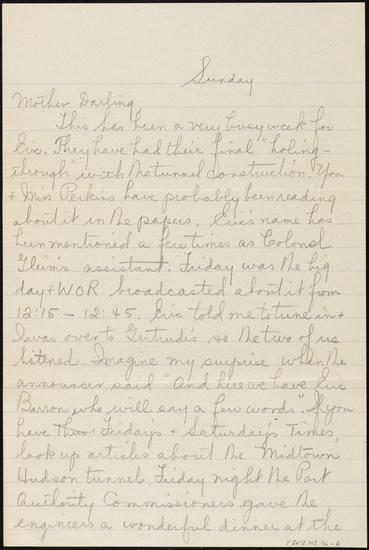 Sunday
Mother Darling,
This has been a very busy week for
Eric. They have had their final "holing-
through" with the tunnel construction. You
+ Miss Perkins have probably been reading
about it in the papers. Eric's name has
been mentioned a few times as Colonel
Gleim's assistant. Friday was the big
day + WOR broadcasted about it from
12:15 - 12:45. Eric told me to tune in +
I was over to Gertrude's so the two of us
listened. Imagine my surprise when the
announcer said "And here we have Eric
Barron, who will say a few words". If you
have Friday's + Saturday's Times,
look up articles about the Midtown
Hudson tunnel. Friday night the Port
Authority Commissioners gave the
engineers a wonderful dinner at the